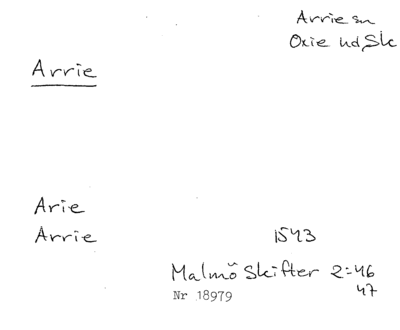 Arrie sn
Oxie hd, Sk
Arrie
Arie
Arrie 1543
Malmö Skifter 2:46
47
Nr 18979